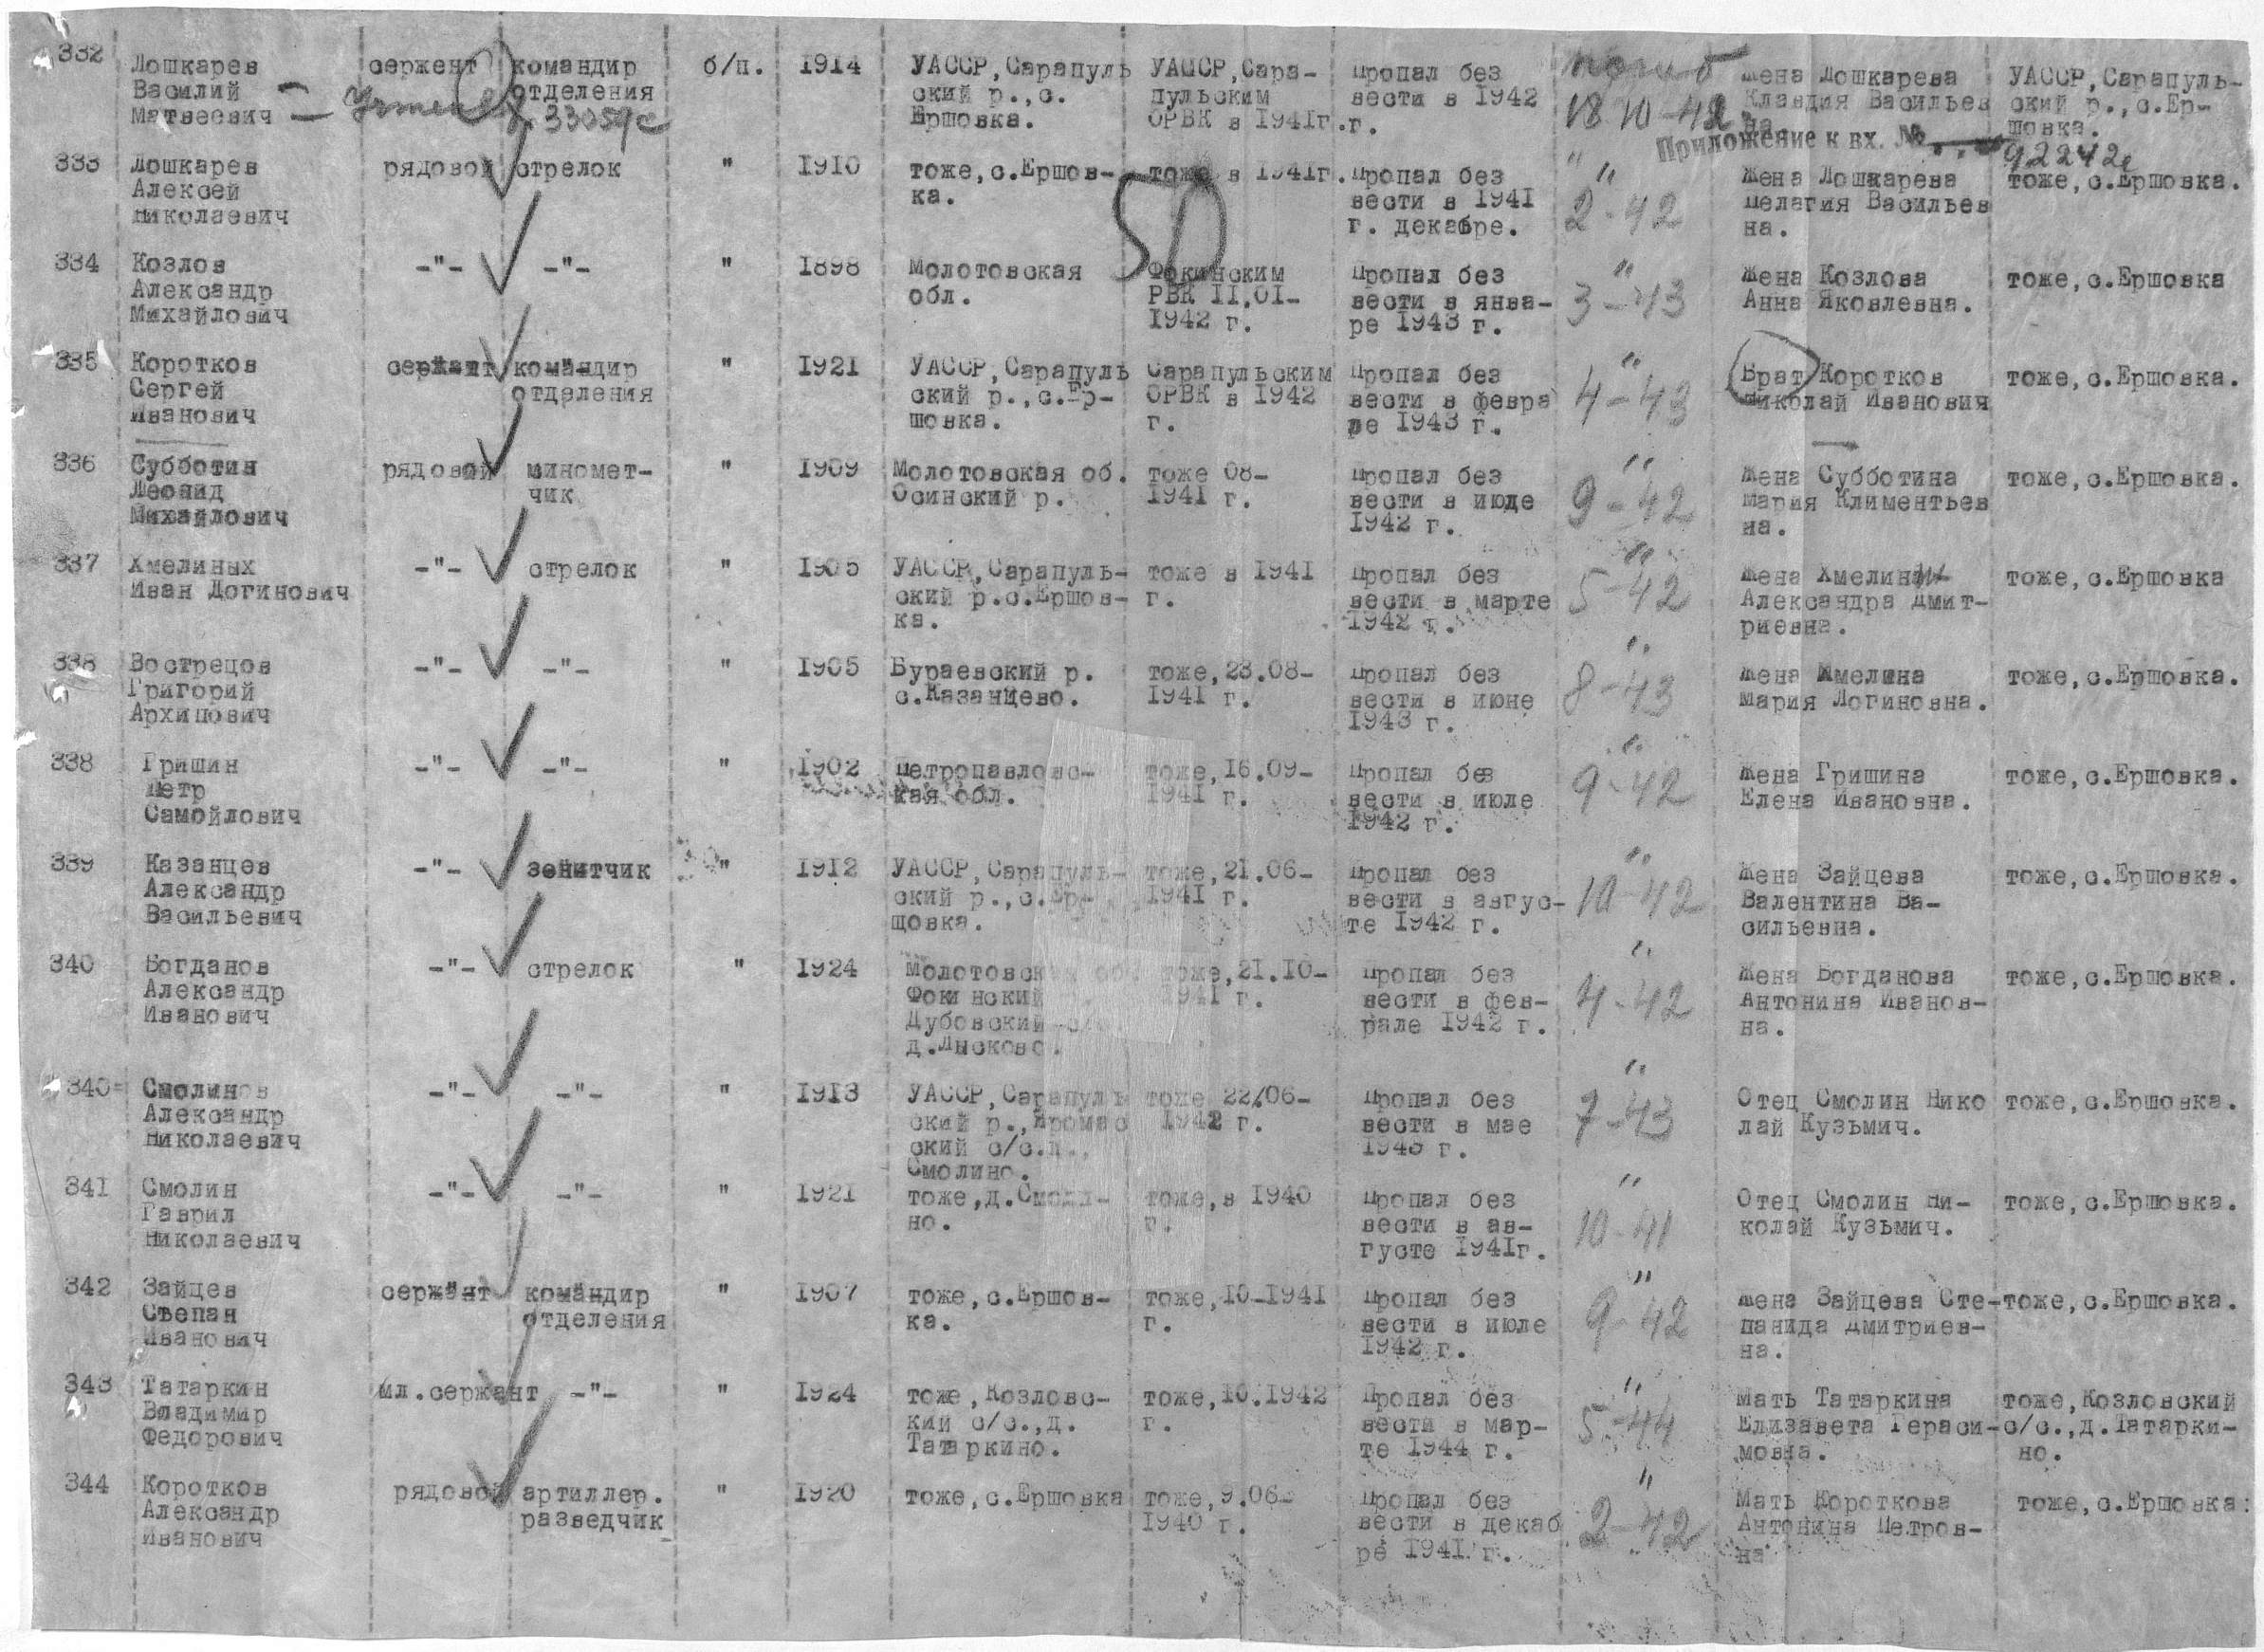 332
Лошкарев
Василий
Матвеевич
сержент
командир
отделения
33059с
б/п.
1914
УАССР,Сарапуль
ский р.,с.
Ершовка.
УАССР,Сара-
пульским
ОРВК в 1941г.
пропал без
вести в 1942
г.
погиб
18 10-42
Жена Лошкарева
Клавдия Васильев
на.
УАССР,Сарапуль-
ский р.,с.Ер-
шовка.
Приложение к вх. №
92242с
333
Лошкарев
Алексей
Николаевич
рядовой
стрелок
"
1910
тоже,с.Ершов-
ка.
тоже в 1941г.
пропал без
вести в 1941
г. декабре.
"
2-42
Жена Лошкарева
Пелагия Васильев
на.
тоже,с.Ершовка.
50
334
Козлов
Александр
Михайлович
-"-
-"-
"
1898
Молотовская
обл.
Фокинским
РВК II.01-
1942 г.
пропал без
вести в янва-
ре 1943 г.
"
3-43
Жена Козлова
Анна Яковлевна.
тоже,с.Ершовка
335
Коротков
Сергей
Иванович
сержант
командир
отделения
"
1921
УАССР,Сарапуль
ский р.,с.Ер-
шовка.
Сарапульским
ОРВК в 1942
г.
пропал без
вести в февра
ре 1943 г.
"
4-43
Брат Коротков
Николай Иванович
тоже,с.Ершовка.
336
Субботин
Леонид
Михайлович
рядовой
миномет-
чик
"
1909
Молотовская об.
Осинский р.
тоже 08-
1941 г.
пропал без
вести в июде
1942 г.
"
9-42
Жена Субботина
Мария Климентьев
на.
тоже,с.Ершовка.
337
Хмелиных
Иван Логинович
-"-
стрелок
"
1905
УАССР,Сарапуль-
ский р.с.Ершов-
ка.
тоже в 1941
г.
пропал без
вести в марте
1942 г.
"
5-42
Жена Хмелиных
Александра Дмит-
риевна.
тоже,с.Ершовка
338
Вострецов
Григорий
Архипович
-"-
-"-
"
1905
Бураевский р.
с.Казанцево.
тоже,23.08-
1941 г.
пропал без
вести в июне
1943 г.
"
8-43
Жена Хмелина
Мария Логиновна.
тоже,с.Ершовка.
338
Гришин
Петр
Самойлович
-"-
-"-
"
1902
Петропавловс-
кая обл.
тоже,16.09-
1941 г.
пропал без
вести в июле
1942 г.
"
9-42
Жена Гришина
Елена Ивановна.
тоже,с.Ершовка.
339
Казанцев
Александр
Васильевич
-"-
зенитчик
"
1912
УАССР,Сарапуль-
ский р.,с.Ер-
шовка.
тоже,21.06-
1941 г.
пропал без
вести в авгус-
те 1942 г.
"
10-42
Жена Зайцева
Валентина Ва-
сильевна.
тоже,с.Ершовка.
340
Богданов
Александр
Иванович
-"-
стрелок
"
1924
Молотовск об
Фокинский
Дубовский
д.Лысково.
тоже,21.10-
1941 г.
пропал без
вести в фев-
рале 1942 г.
"
4-42
Жена Богданова
Антонина Иванов-
на.
тоже,с.Ершовка.
340
Смолинов
Александр
Николаевич
-"-
-"-
"
1913
УАССР,Сарапуль
ский р.,Яромас
ский с/с.д.,
Смолино.
тоже 22/06-
1942 г.
пропал без
вести в мае
1943 г.
"
7-43
Отец Смолин Нико
лай Кузьмич.
тоже,с.Ершовка.
341
Смолин
Гаврил
Николаевич
-"-
-"-
"
1921
тоже,д.Смоли-
но.
тоже,в 1940
г.
пропал без
вести в ав-
густе 1941г.
"
10-41
Отец Смолин Ни-
колай Кузьмич.
тоже,с.Ершовка.
342
Зайцев
Степан
Иванович
сержант
командир
отделения
"
1907
тоже,с.Ершов-
ка.
тоже,10-1941
г.
пропал без
вести в июле
1942 г.
"
9-42
Жена Зайцева Сте-
панида Дмитриев-
на.
тоже,с.Ершовка.
343
Татаркин
Владимир
Федорович
мл.сержант
-"-
"
1924
тоже,Козловс-
кий с/с.,д.
Татаркино.
тоже,10.1942
г.
пропал без
вести в мар-
те 1944 г.
"
5-44
Мать Татаркина
Елизавета Гераси-
мовна.
тоже,Козловский
с/с.,д.Татарки-
но.
344
Коротков
Александр
Иванович
рядовой
артиллер.
разведчик
"
1920
тоже,с.Ершовка
тоже,9.06-
1940 г.
пропал без
вести в декаб
ре 1941 г.
"
2-42
Мать Короткова
Антонина Петров-
на
тоже,с.Ершовка.